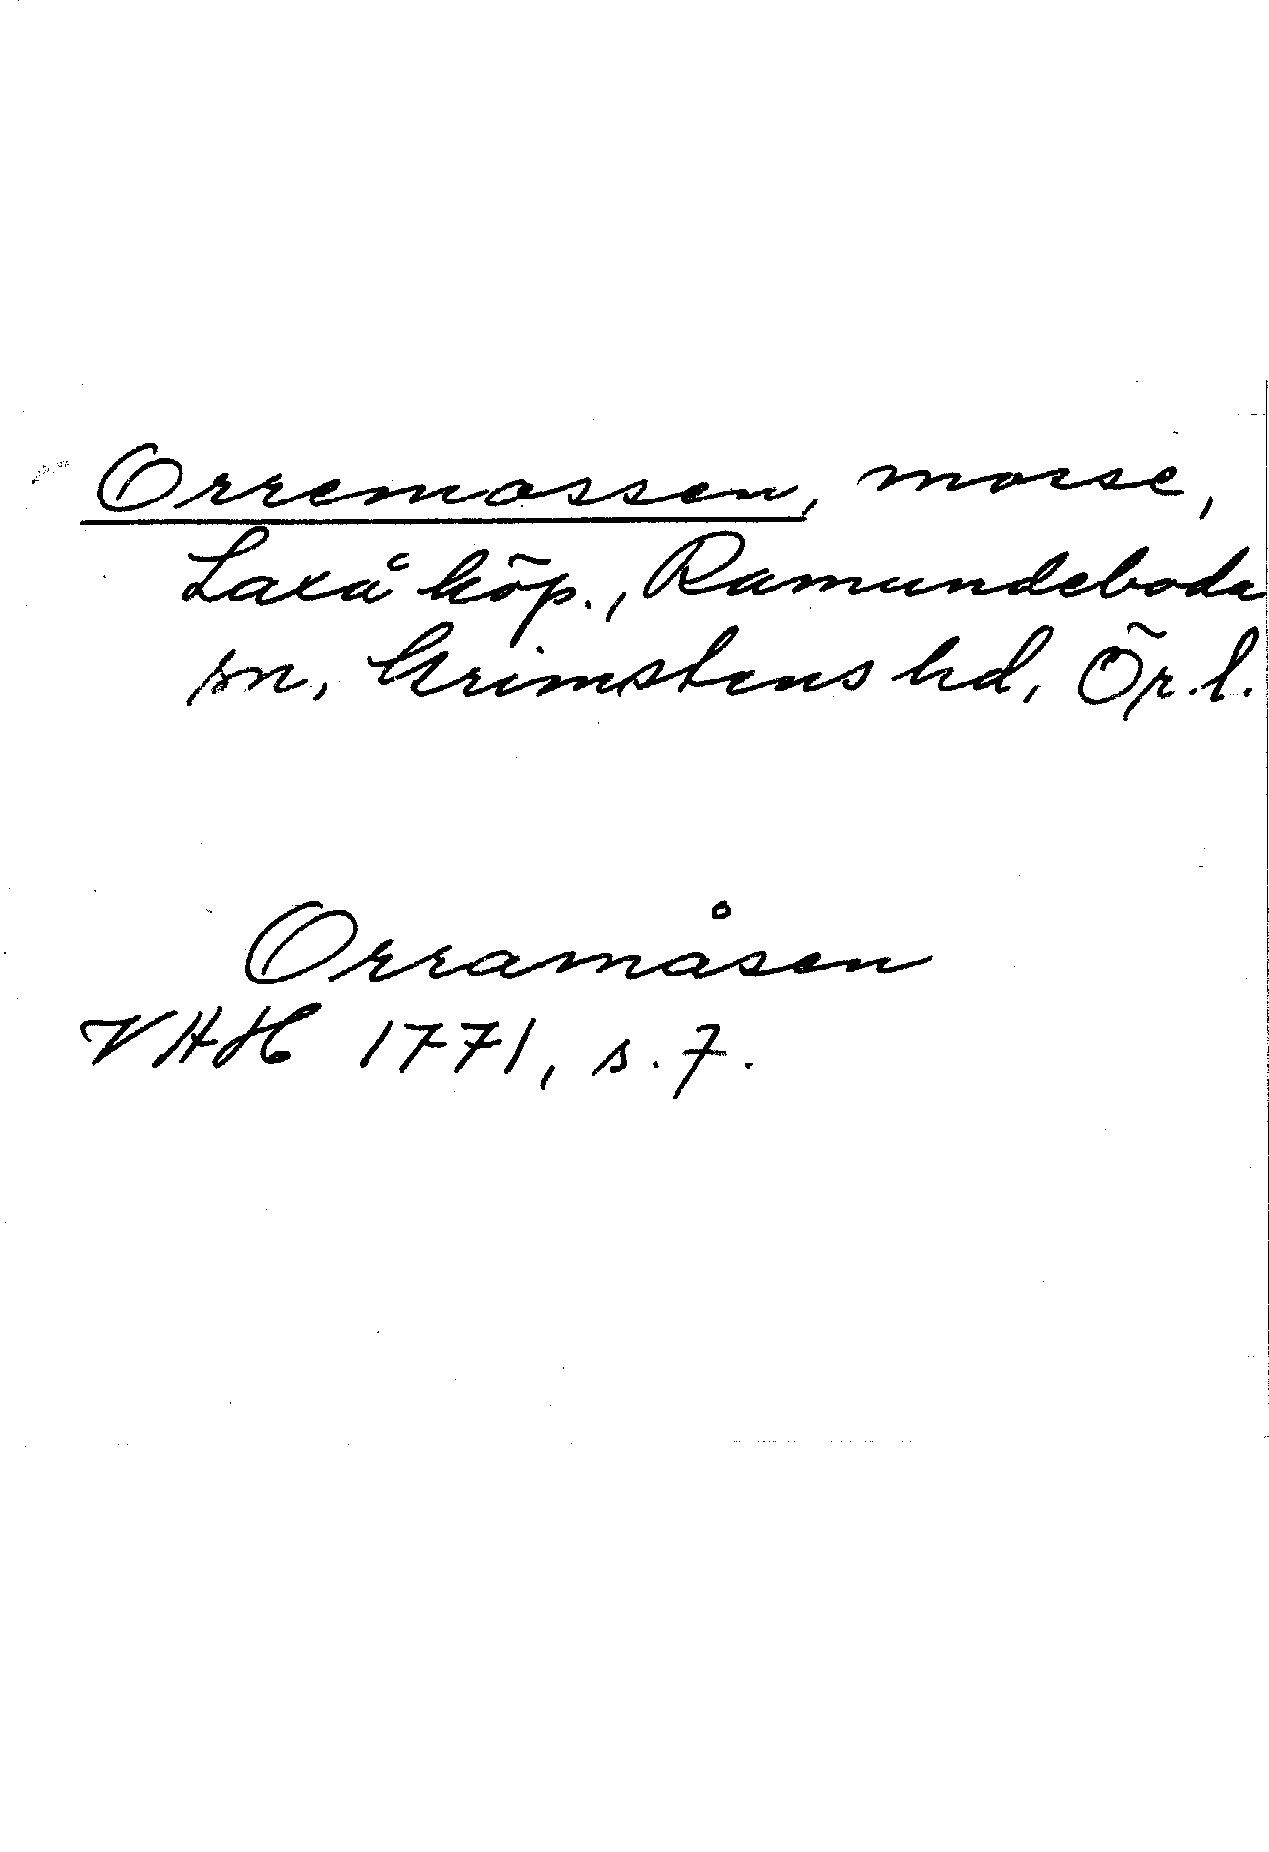 Orremossen, mosse,
Laxå köp., Ramundeboda
sn, Grimstens hd, Ör. l.
Orramåsen
VHH 1771, s. 7.